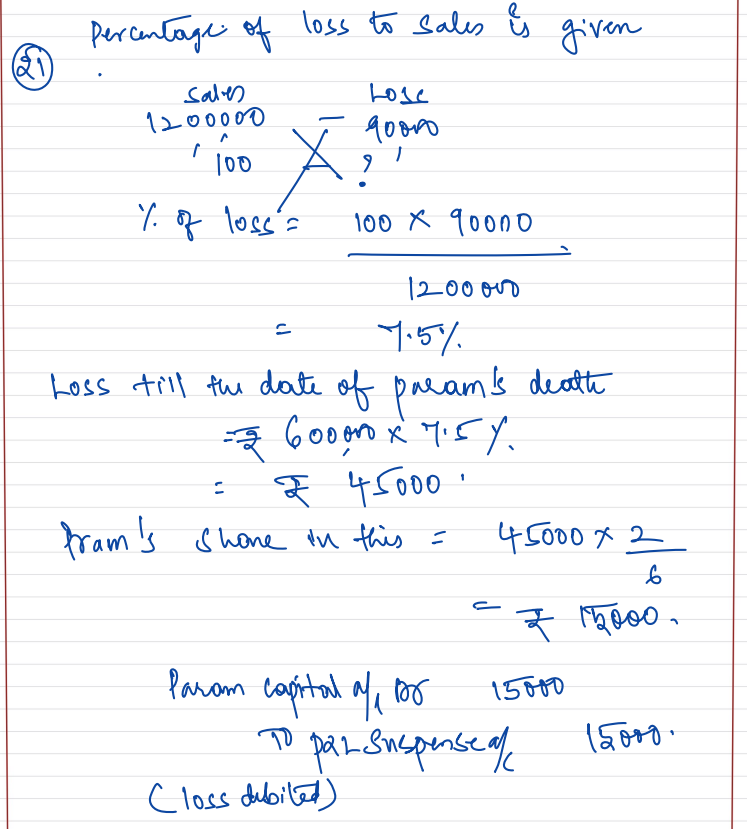 Percentage of loss to sales is given
21
Sales Loss
1200000 — 90000
100 ?
% of loss = 100 × 90000
1200000
= 7.5%
Loss till the date of param's death
= ₹ 600000 × 7.5%
= ₹ 45000
Pram's share in this = 45000 × 2
6
= ₹ 15000.
Param capital a/c Dr 15000
To P&L Suspense a/c 15000.
(loss debited)